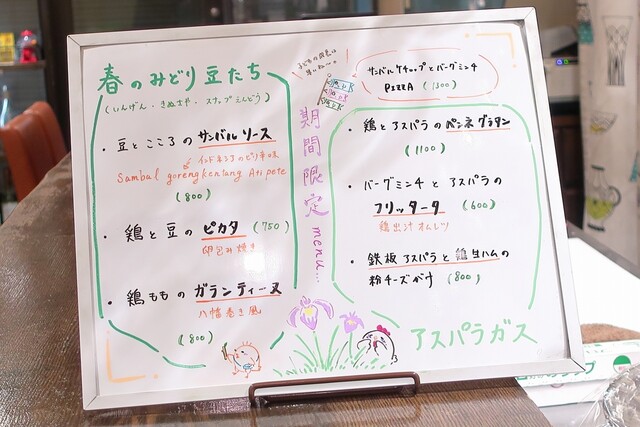 春のみどり豆たち
(いんげん・きぬさや・スナップえんどう)
・豆とこころのサンバルソース
インドネシアのピリ辛味
Sambal goreng kentang Ati pete
(800)
・鶏と豆のピカタ (750)
卵包み焼き
・鶏ももの ガランティーヌ
八幡巻き風
(800)
期間限定 menu...
サンバルケチャップとバーグミンチ
PIZZA (1300)
・鶏とアスパラのペンネグラタン
(1100)
・バーグミンチとアスパラの
フリッタータ (600)
鶏出汁オムレツ
・鉄板アスパラと鶏生ハムの
粉チーズがけ (800)
アスパラガス